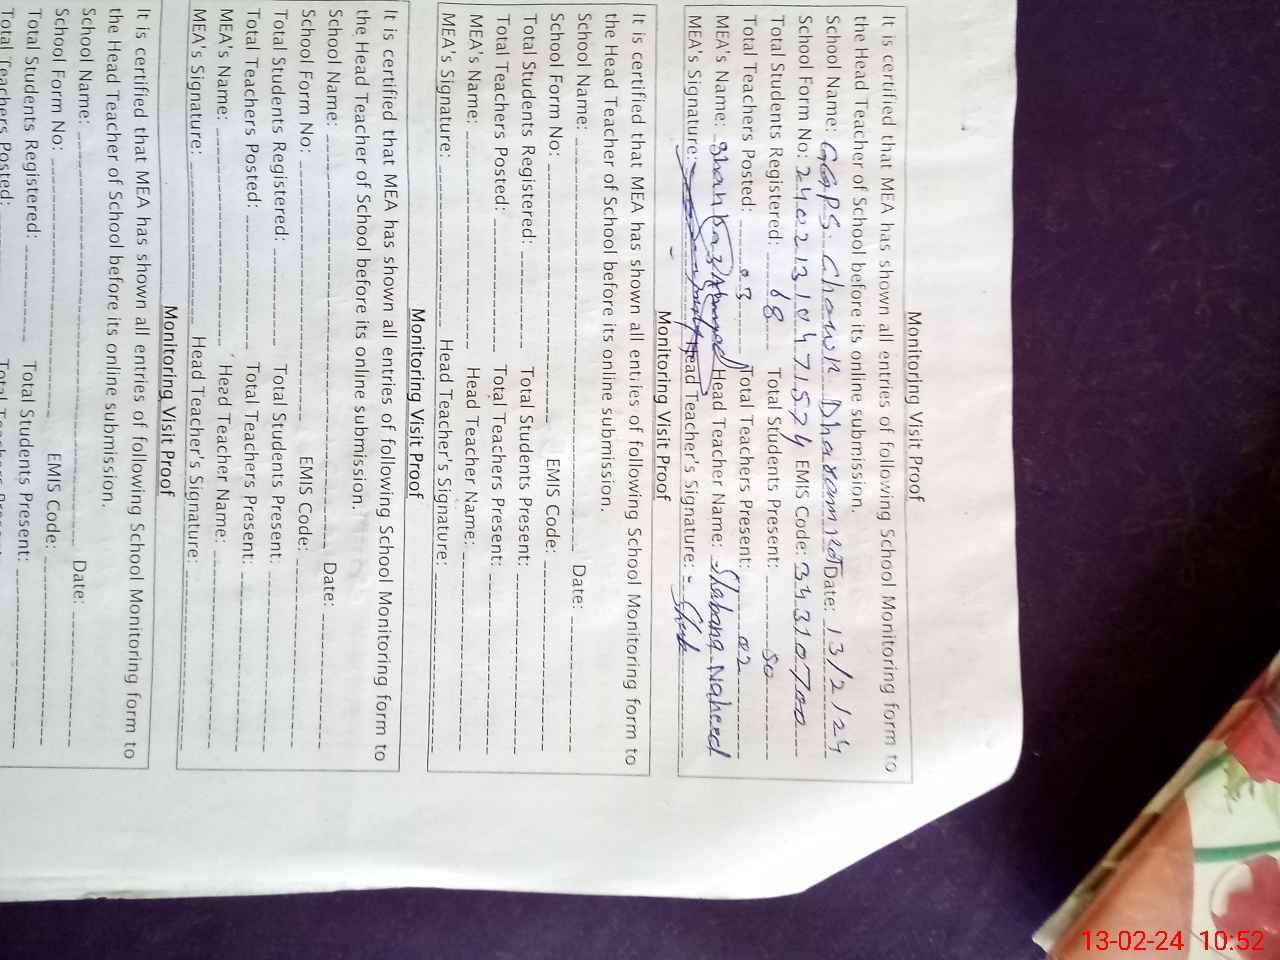 Monitoring Visit Proof
It is certified that MEA has shown all entries of following School Monitoring form to
the Head Teacher of School before its online submission.
School Name: GGPS Chowk Date: 13/2/24
School Form No: EMIS Code: 34310700
Total Students Registered: 68 Total Students Present: 50
Total Teachers Posted: 03 Total Teachers Present: 02
MEA's Name: Head Teacher Name: Shabana Naheed
MEA's Signature: Head Teacher's Signature:
Monitoring Visit Proof
It is certified that MEA has shown all entries of following School Monitoring form to
the Head Teacher of School before its online submission.
School Name: Date:
School Form No: EMIS Code:
Total Students Registered: Total Students Present:
Total Teachers Posted: Total Teachers Present:
MEA's Name: Head Teacher Name:
MEA's Signature: Head Teacher's Signature:
Monitoring Visit Proof
It is certified that MEA has shown all entries of following School Monitoring form to
the Head Teacher of School before its online submission.
School Name: Date:
School Form No: EMIS Code:
Total Students Registered: Total Students Present:
Total Teachers Posted: Total Teachers Present:
MEA's Name: Head Teacher Name:
MEA's Signature: Head Teacher's Signature:
Monitoring Visit Proof
It is certified that MEA has shown all entries of following School Monitoring form to
the Head Teacher of School before its online submission.
School Name: Date:
School Form No: EMIS Code:
Total Students Registered: Total Students Present:
Total Teachers Posted:
13-02-24 10:52